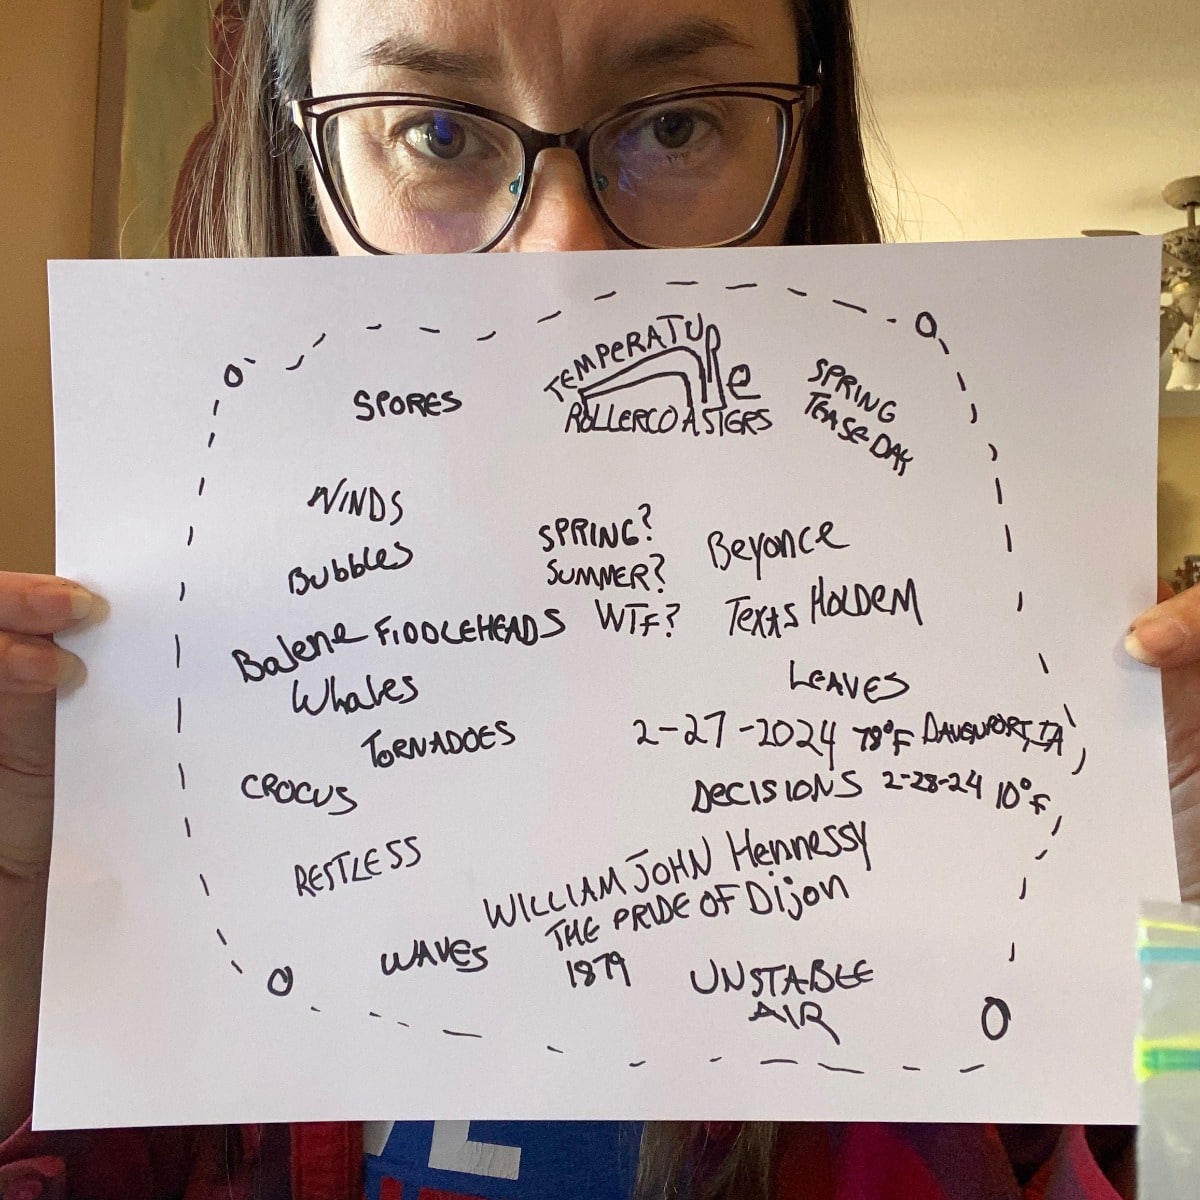 SPORES
TEMPERATURe
ROLLERCOASTERS
SPRING
TEASE DAY
WINDS
Bubbles
SPRING?
SUMMER?
WTF?
Beyonce
Texas HOLDEM
Balene
Whales
FIDDLEHEADS
LEAVES
TORNADOES
2-27-2024 78°F DAVENPORT, IA
CROCUS
DECISIONS 2-28-24 10°F
RESTLESS
WILLIAM JOHN Hennessy
THE PRIDE OF Dijon
1879
WAVES
UNSTABLE
AIR